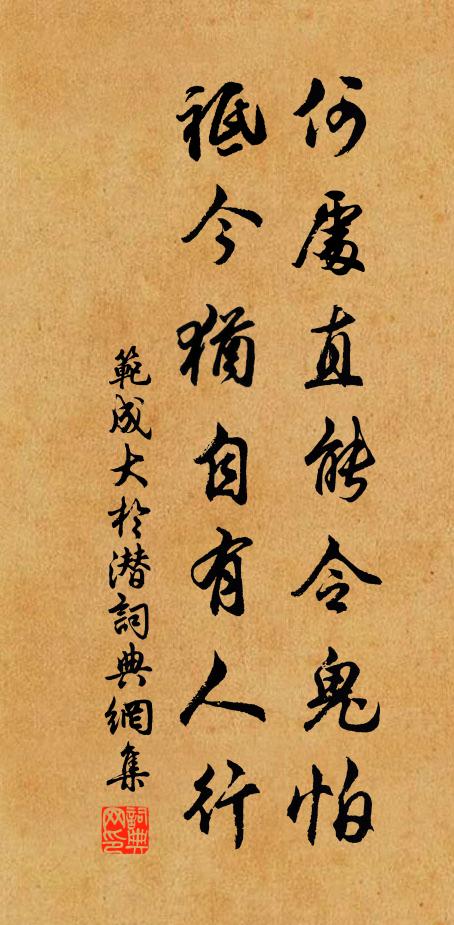 何處直能令鬼怕
祗今猶自有人行
範成大於潛詞典網集
詞典网印